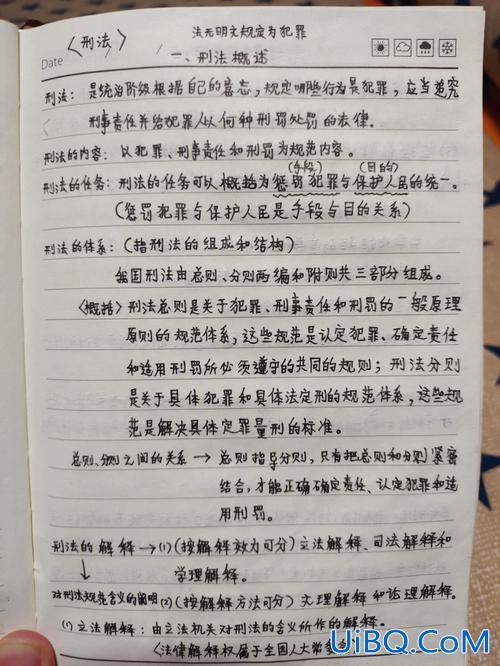 〈刑法〉
法无明文规定为犯罪
Date
一、刑法概述
刑法：是统治阶级根据自己的意志，规定哪些行为是犯罪，应当追究
刑事责任并给犯罪人以何种刑罚处罚的法律.
刑法的内容：以犯罪、刑事责任和刑罚为规范内容。
(手段) (目的)
刑法的任务：刑法的任务可以概括为惩罚犯罪与保护人民的统一。
(惩罚犯罪与保护人民是手段与目的关系)
刑法的体系：(指刑法的组成和结构)
我国刑法由总则、分则两编和附则共三部分组成。
〈概括〉刑法总则是关于犯罪、刑事责任和刑罚的一般原理
原则的规范体系，这些规范是认定犯罪、确定责任
和适用刑罚所必须遵守的共同的规则；刑法分则
是关于具体犯罪和具体法定刑的规范体系，这些规
范是解决具体定罪量刑的标准。
总则、分则之间的关系→总则指导分则，只有把总则和分则紧密
结合，才能正确确定责任、认定犯罪和适
用刑罚。
刑法的解释→(1)(按解释效力可分)立法解释、司法解释和
学理解释。
↓
对刑法规范含义的阐明(2)(按解释方法可分)文理解释和论理解释.
(1)立法解释：由立法机关对刑法的含义所作的解释。
〈法律解释权属于全国人大常委会〉
UiBQ.CoM